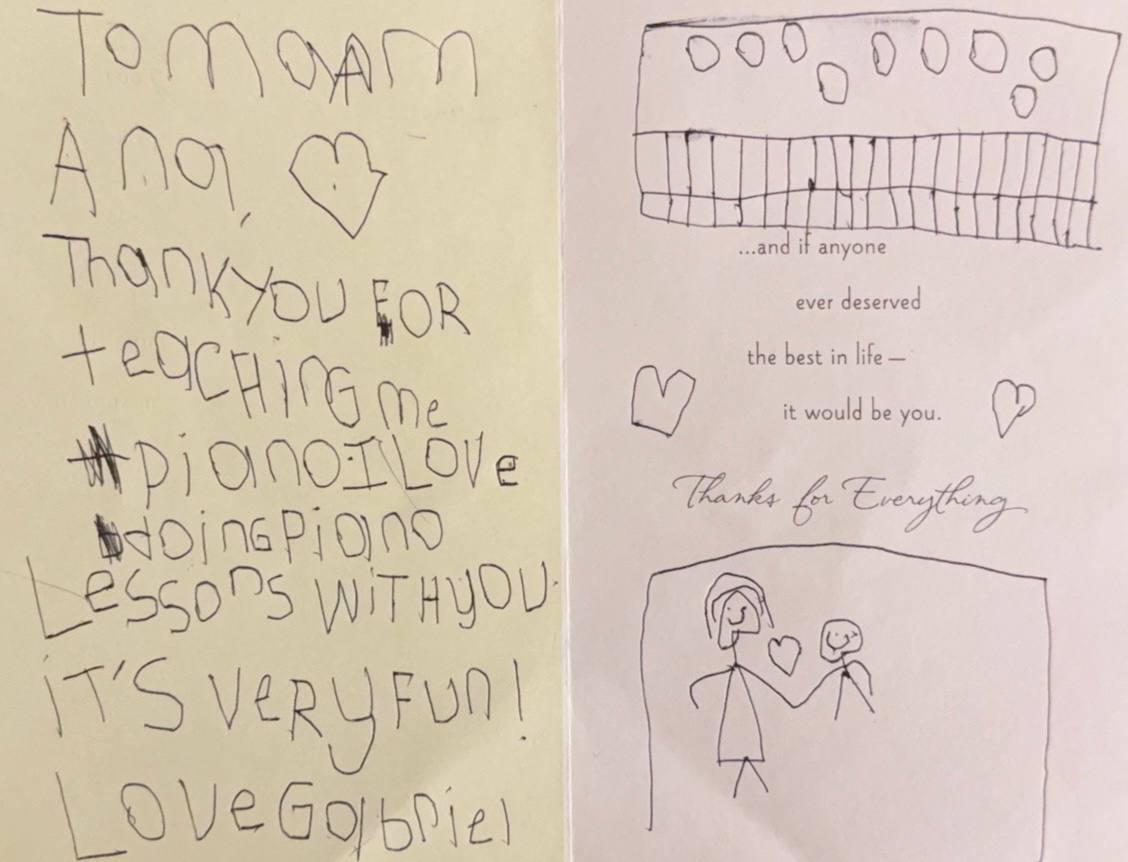 To maAm
Ana,
Thank you FOR
teaCHinG me
piano I LOVe
doinG Piano
Lessons WiTH you
iT'S VeRy FUn!
LOVe Gabriel
...and if anyone
ever deserved
the best in life —
it would be you.
Thanks for Everything